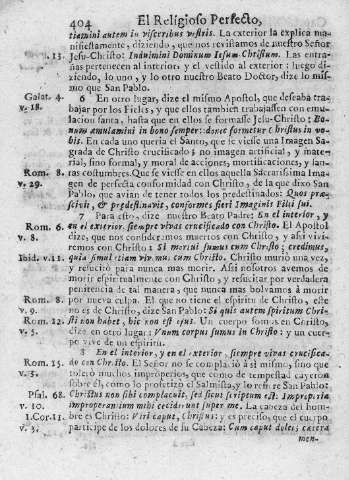 404 El Religioso Perfecto,
tiamini autem in visceribus vestris. La exterior la explica ma-
nifiestamente, diziendo, que nos revistamos de nuestro Señor
v. 13. Jesu-Christo: Induimini Dominum Iesum Christum. Las entra-
ñas pertenecen al interior; y el vestido al exterior: luego di-
ziendo, lo uno, y lo otro nuestro Beato Doctor, dize lo mis-
mo que San Pablo.
Galat. 4. 6 En otro lugar, dize el mismo Apostol, que deseaba tra-
v. 18. bajar por los Fieles, y que ellos tambien trabajassen con emu-
lacion santa, hasta que en ellos se formasse Jesu-Christo: Bo-
num æmulamini in bono semper: donec formetur Christus in vo-
bis. En cada uno queria el Santo, que se viesse una Imagen Sa-
grada de Christo crucificado; no imagen artificial, y mate-
rial, sino formal, y moral de acciones, mortificaciones, y san-
Rom. 8. tas costumbres. Que se viesse en ellos aquella Sacratissima Ima-
v. 29. gen de perfecta conformidad con Christo, de la que dixo San
Pablo, que avian de tener todos los predestinados: Quos præ-
scivit, & prædestinavit, conformes fieri Imaginis Filii sui.
7 Para esto, dize nuestro Beato Padre: En el interior, y
Rom. 6. en el exterior, siempre vivas crucificado con Christo. El Apostol
v. 8. dize, que nos consideremos muertos con Christo, y assi vivi-
remos con Christo: Si mortui sumus cum Christo; credimus,
Ibid. v. 11. quia simul etiam vivemus cum Christo. Christo murió una vez,
y resucitó para nunca mas morir. Assi nosotros avemos de
morir espiritualmente con Christo, y resucitar por verdadera
penitencia de tal manera, que nunca mas bolvamos à morir
Rom. 8. por nueva culpa. El que no tiene el espiritu de Christo, este
v. 9. no es de Christo, dize San Pablo: Si quis autem spiritum Chri-
Rom. 12. sti non habet, hic non est ejus. Un cuerpo somos en Christo,
v. 5. dize en otro lugar: Unum corpus sumus in Christo: y un cuer-
po vive de un espiritu.
8 En el interior, y en el exterior, siempre vivas crucifica-
Rom. 15. do con Christo. El Señor no se complació à sí mismo, sino que
v. 3. toleró muchos improperios, que como de tempestad cayeron
sobre él, como lo profetizó el Salmista, y lo refiere San Pablo:
Psal. 68. Christus non sibi complacuit, sed sicut scriptum est: Improperia
v. 10. improperantium tibi ceciderunt super me. La cabeza del hom-
1. Cor. 11. bre es Christo: Viri caput, Christus: y es preciso, que el cuerpo
v. 3. participe de los dolores de su Cabeza: Cum caput dolet; cætera
mem-